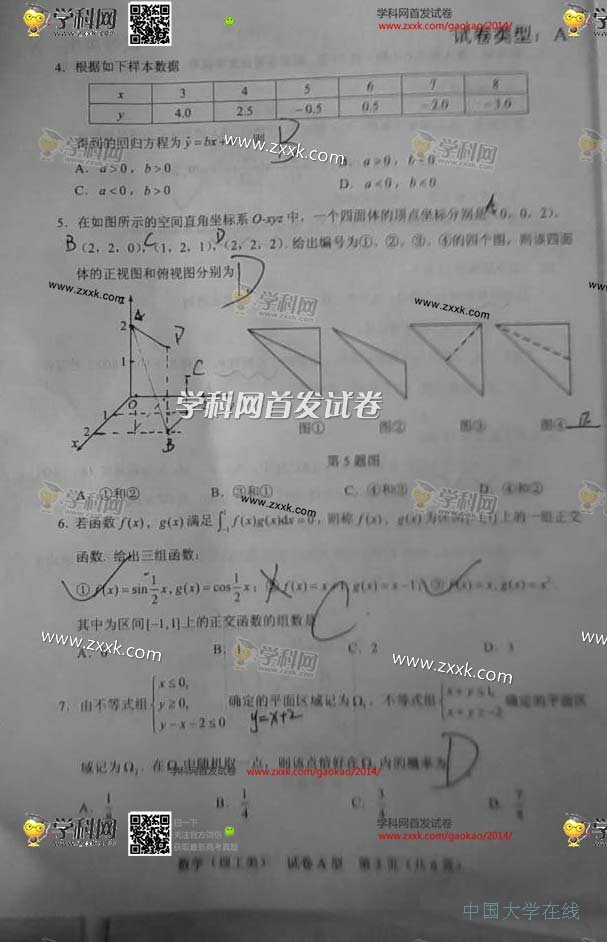 学科网
学科网首发试卷
www.zxxk.com/gaokao/2014/
学科网
试卷类型：A
4. 根据如下样本数据
x 3 4 5 6 7 8
y 4.0 2.5 -0.5 0.5 -2.0 -3.0
得到的回归方程为 ŷ=bx+ 则 B
学科网
www.zxxk.com
学科网
A. a>0，b>0 B. a>0，b<0
C. a<0，b>0 D. a<0，b<0
5. 在如图所示的空间直角坐标系 O-xyz 中，一个四面体的顶点坐标分别是 A 0，0，2），
B（2，2，0），C（1，2，1），D（2，2，2）. 给出编号为①，②，③，④的四个图，则该四面
体的正视图和俯视图分别为 D
www.zxxk.com
学科网
www.zxxk.com
z A 2 D 1 C O 1 2 x B
学科网首发试卷
图① 图② 图③ 图④ 正
第5题图
A. ①和② B. ③和① C. ④和③ D. ④和②
学科网
www.zxxk.com
学科网
6. 若函数 f(x)，g(x) 满足 ∫₋₁¹ f(x)g(x)dx=0，则称 f(x)，g(x) 为区间[-1,1]上的一组正交
函数. 给出三组函数：
① f(x)=sin½x, g(x)=cos½x； f(x)=x g(x)=x-1 ③ f(x)=x, g(x)=x²
其中为区间[-1,1]上的正交函数的组数是 C
www.zxxk.com
学科网
www.zxxk.com
A. 0 B. 1 C. 2 D. 3
7. 由不等式组 { x≤0, y≥0, y-x-2≤0 确定的平面区域记为Ω₁，不等式组 { x+y≤1, x+y≥-2 确定的平面区
y=x+2
域记为Ω₂. 在Ω₁中随机取一点，则该点恰好在Ω₂内的概率为 D
学科网首发试卷
www.zxxk.com/gaokao/2014/
A. 1/8 B. 1/4 C. 3/4 D. 7/8
学科网
扫一下
关注官方微信
获取最新高考真题
学科网首发试卷
www.zxxk.com/gaokao/2014/
学科网
数学（理工类） 试卷A型 第2页（共6页）
中国大学在线